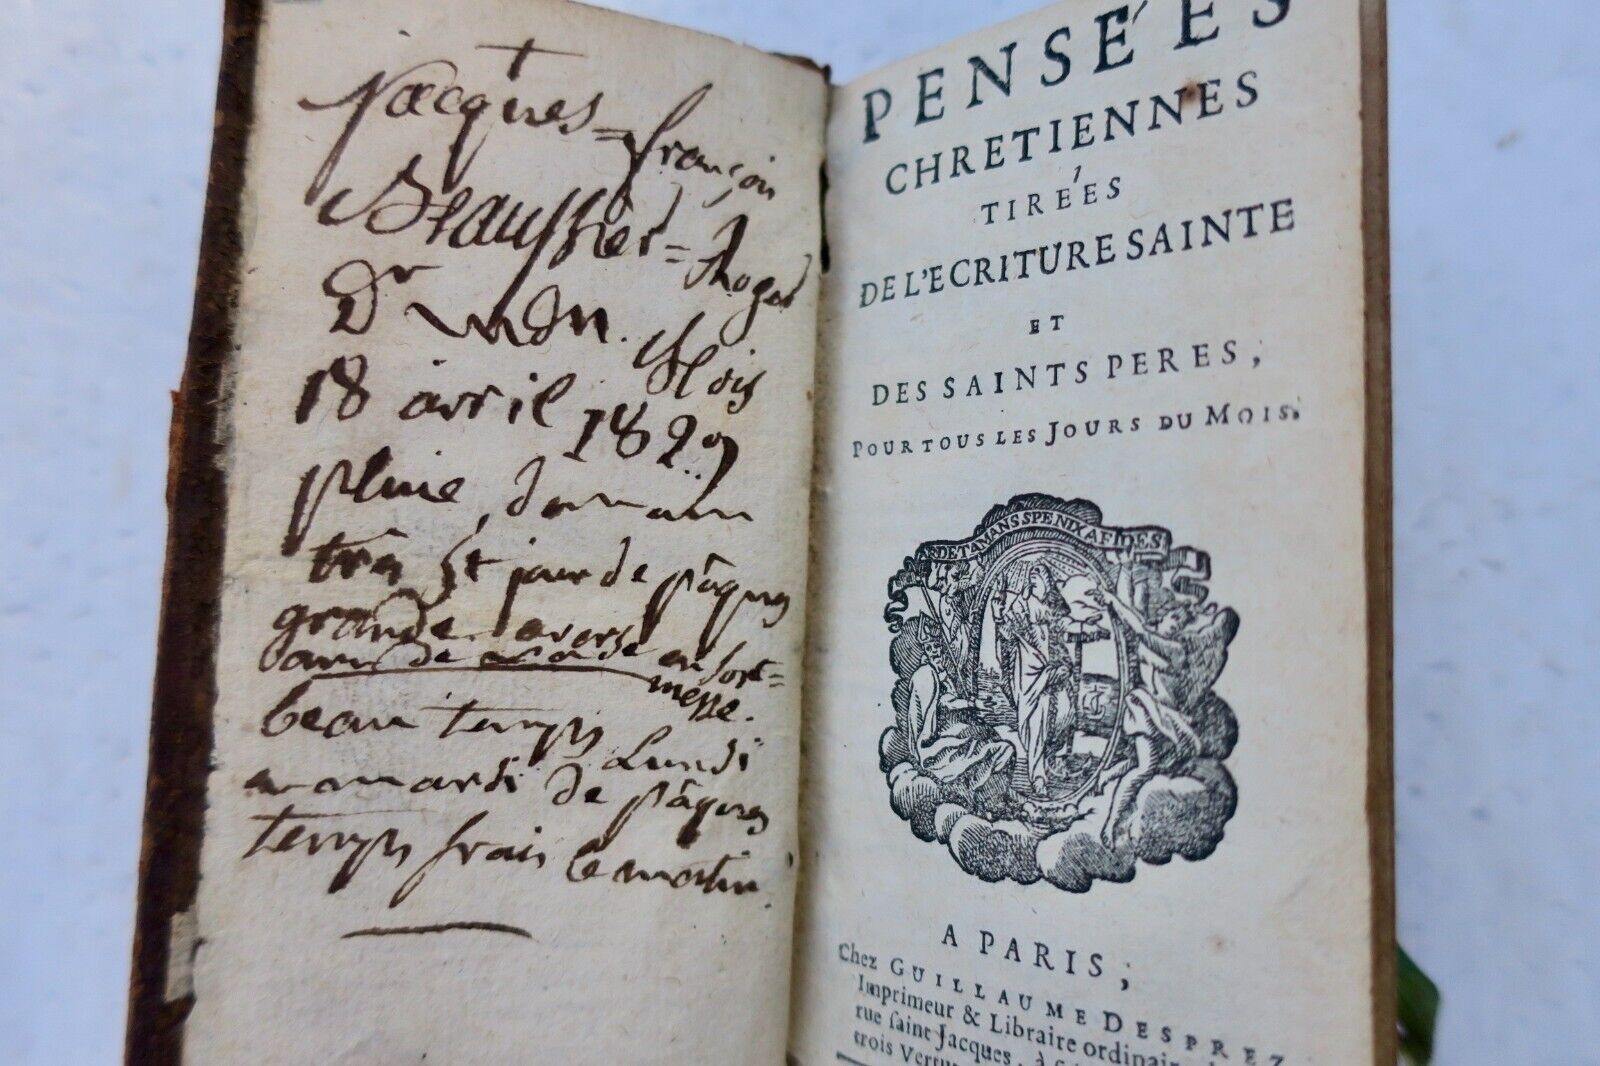 Jacques = françois
Beaussier =
Dr
18 avril 1829
pluie, demain
très St jour de pâques
grande averse
en sort=
messe.
beau temps Lundi
mardi de pâques
temps frais le matin.
PENSÉES
CHRETIENNES
TIRÉES
DE L'ECRITURE SAINTE
ET
DES SAINTS PERES,
POUR TOUS LES JOURS DU MOIS.
ARDET AMANS SPE NIXA FIDES
A PARIS,
Chez GUILLAUME DESPREZ
Imprimeur & Libraire ordinaire
rue saint Jacques, à
trois Vertu